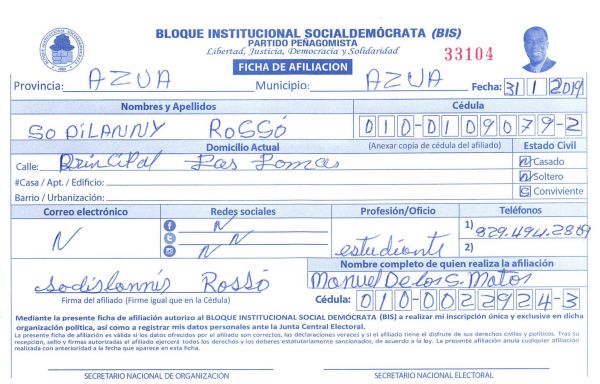 BLOQUE INSTITUCIONAL SOCIALDEMÓCRATA (BIS)
PARTIDO PEÑAGOMISTA
Libertad, Justicia, Democracia y Solidaridad
33104
FICHA DE AFILIACION
Provincia: AZUA Municipio: AZUA Fecha: 31 1 2019
Nombres y Apellidos Cédula
SODILANNY ROSSÓ 010-0109079-2
Domicilio Actual (Anexar copia de cédula del afiliado) Estado Civil
Calle: Principal Las Lomas N Casado
#Casa / Apt. / Edificio: N Soltero
Barrio / Urbanización: S Conviviente
Correo electrónico Redes sociales Profesión/Oficio Teléfonos
N N N N estudiante 1) 829.494.2809
2)
Nombre completo de quien realiza la afiliación
sodislannis Rossó Manuel De los S. Matos
Firma del afiliado (Firme igual que en la Cédula) Cédula: 010-0022924-3
Mediante la presente ficha de afiliación autorizo al BLOQUE INSTITUCIONAL SOCIAL DEMÓCRATA (BIS) a realizar mi inscripción única y exclusiva en dicha
organización política, así como a registrar mis datos personales ante la Junta Central Electoral.
La presente ficha de afiliación es válida si los datos ofrecidos por el afiliado son correctos, las declaraciones veraces y si el afiliado tiene el disfrute de sus derechos civiles y políticos. Tras su
recepción, sello y firmas autorizadas el afiliado ejercerá todos los derechos y los deberes estatutariamente sancionados, de acuerdo a la ley. El presente afiliación anula cualquier afiliación
realizada con anterioridad a la fecha que aparece en esta ficha.
SECRETARIO NACIONAL DE ORGANIZACIÓN SECRETARIO NACIONAL ELECTORAL